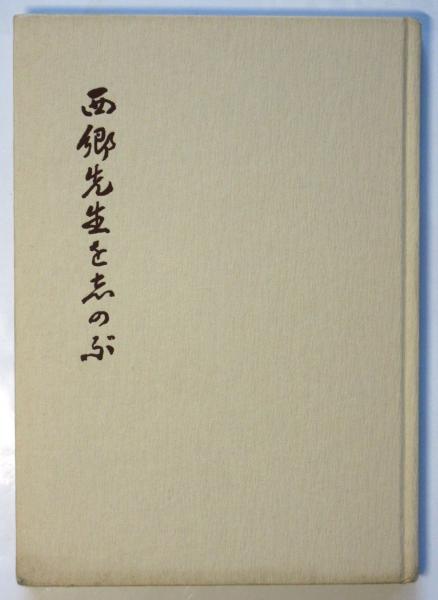 西郷先生を志のぶ